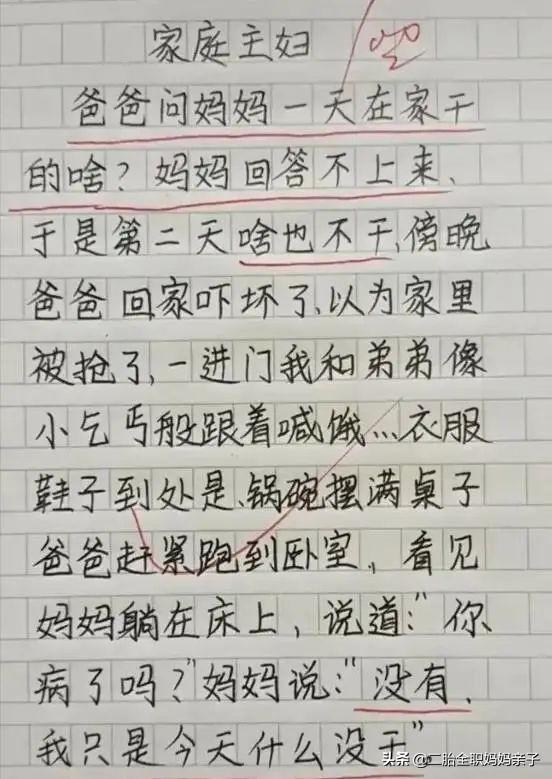 家庭主妇
爸爸问妈妈一天在家干
的啥？妈妈回答不上来、
于是第二天啥也不干、傍晚
爸爸回家吓坏了、以为家里
被抢了、一进门我和弟弟像
小乞丐般跟着喊饿…衣服
鞋子到处是、锅碗摆满桌子
爸爸赶紧跑到卧室，看见
妈妈躺在床上，说道："你
病了吗？"妈妈说："没有、
我只是今天什么没干"。
头条 @二胎全职妈妈亲子